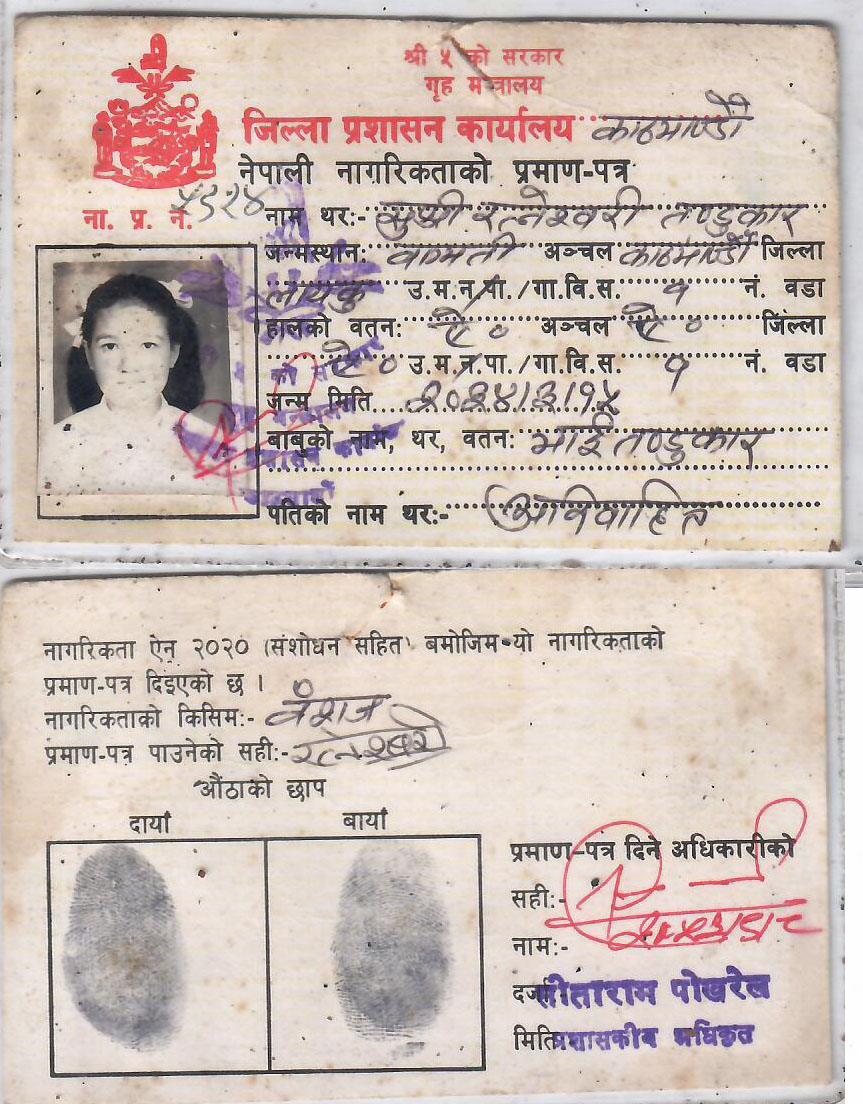 श्री ५ को सरकार
गृह मन्त्रालय
जिल्ला प्रशासन कार्यालय काठमाण्डौ
नेपाली नागरिकताको प्रमाण-पत्र
ना. प्र. नं.
नाम थर:- सुश्री रत्नेश्वरी तण्डुकार
जन्मस्थान: वाग्मती अञ्चल काठमाण्डौ जिल्ला
लायकु उ.म.न.पा./गा.वि.स. १ नं. वडा
हालको वतन: ऐ० अञ्चल ऐ० जिल्ला
ऐ० उ.म.न.पा./गा.वि.स. १ नं. वडा
जन्म मिति २०२४।३।१५
बाबुको नाम, थर, वतन: भाई तण्डुकार
पतिको नाम थर:- अविवाहित
नागरिकता ऐन २०२० (संशोधन सहित) बमोजिम यो नागरिकताको
प्रमाण-पत्र दिइएको छ ।
नागरिकताको किसिम:- वंशज
प्रमाण-पत्र पाउनेको सही:- रत्नेश्वरी
औंठाको छाप
दायाँ बायाँ
प्रमाण-पत्र दिने अधिकारीको
सही:-
नाम:-
दर्जा सीताराम पोखरेल
मिति प्रशासकीय अधिकृत